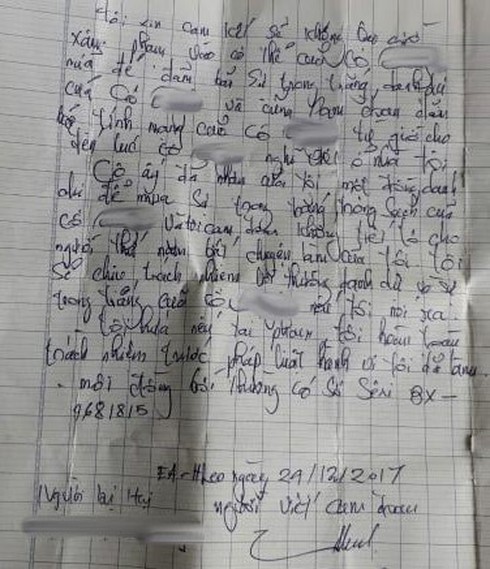 Tôi xin cam kết sẽ không bao giờ
xâm phạm vào cơ thể của cô
nữa để đảm bảo sự trong trắng, danh dự
của cô và cũng đảm
bảo tính mạng của cô từ giờ cho
đến lúc cô nghỉ việc ở nhà tôi
Cô ấy đã nhận của tôi một đồng danh
dự để mua sự trong trắng trong sạch của
cô Và tôi cam đoan không tiết lộ cho
người thứ năm biết chuyện làm của tôi. Tôi
sẽ chịu trách nhiệm bồi thường danh dự
trong trắng của cô nếu tôi nói ra.
Tôi hứa nếu tái phạm, tôi hoàn toàn
trách nhiệm trước pháp luật hành vi tôi đã làm.
. một đồng bồi thường có số Sêri BX –
9681815
EA-Hleo ngày 29/12/2017
Người bị Hại người viết cam đoan